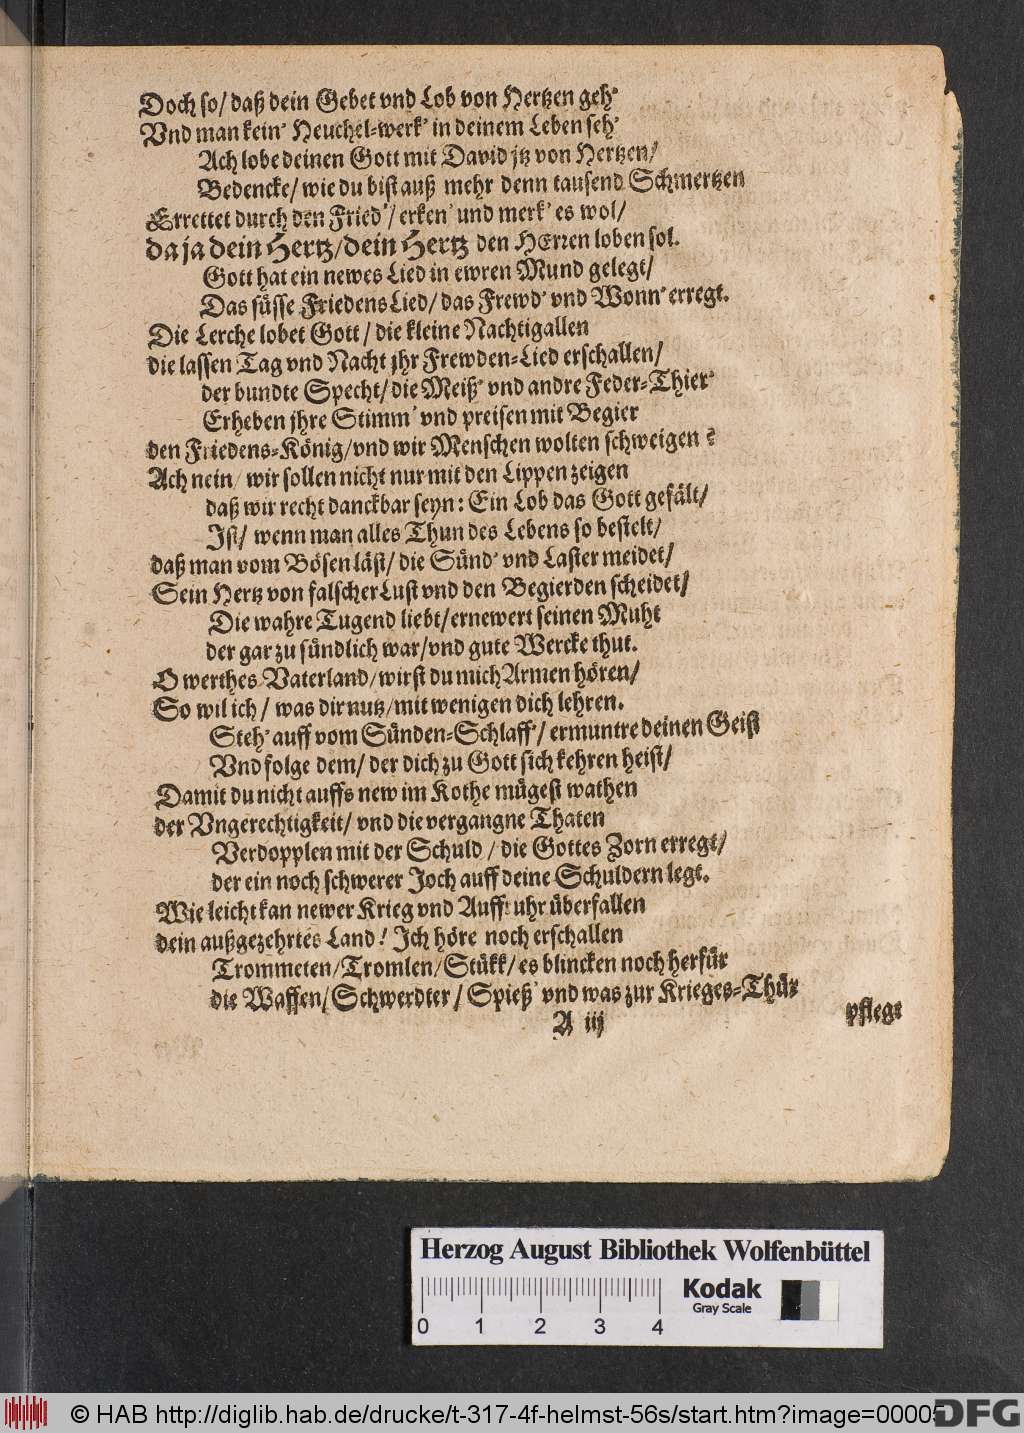 Doch so/ daß dein Gebet vnd Lob von Hertzen geh'
Vnd man kein' Heuchel-werk' in deinem Leben seh'
Ach lobe deinen Gott mit David jtz von Hertzen/
Bedencke/ wie du bist auß mehr denn tausend Schmertzen
Errettet durch den Fried'/ erken' und merk' es wol/
da ja dein Hertz/ dein Hertz den HErren loben sol.
Gott hat ein newes Lied in ewren Mund gelegt/
Das süsse FriedensLied/ das Frewd' vnd Wonn' erregt.
Die Lerche lobet Gott/ die kleine Nachtigallen
die lassen Tag vnd Nacht jhr Frewden-Lied erschallen/
der bundte Specht/ die Meiß' vnd andre Feder-Thier'
Erheben jhre Stimm' vnd preisen mit Begier
den Friedens-König/ vnd wir Menschen wolten schweigen?
Ach nein/ wir sollen nicht nur mit den Lippen zeigen
daß wir recht danckbar seyn: Ein Lob das Gott gefält/
Ist/ wenn man alles Thun des Lebens so bestelt/
daß man vom Bösen läst/ die Sünd' vnd Laster meidet/
Sein Hertz von falscher Lust vnd den Begierden scheidet/
Die wahre Tugend liebt/ ernewert seinen Muht
der gar zu sündlich war/ vnd gute Wercke thut.
O werthes Vaterland/ wirst du mich Armen hören/
So wil ich/ was dir nutz/ mit wenigen dich lehren.
Steh' auff vom Sünden-Schlaff'/ ermuntre deinen Geist
Vnd folge dem/ der dich zu Gott sich kehren heist/
Damit du nicht auffs new im Kothe mügest wathen
der Vngerechtigkeit/ vnd die vergangne Thaten
Verdopplen mit der Schuld/ die Gottes Zorn erregt/
der ein noch schwerer Joch auff deine Schuldern legt.
Wie leicht kan newer Krieg vnd Auffruhr überfallen
dein außgezehrtes Land! Ich höre noch erschallen
Trommeten/ Tromlen/ Stükk/ es blincken noch herfür
die Waffen/ Schwerdter/ Spieß' vnd was zur Krieges-Thür
A iij
pflegt
Herzog August Bibliothek Wolfenbüttel
Kodak
Gray Scale
0 1 2 3 4
© HAB http://diglib.hab.de/drucke/t-317-4f-helmst-56s/start.htm?image=00005
DFG